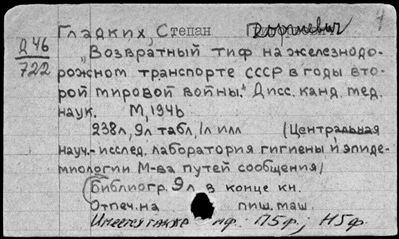 7
Гладких, Степан Корнеевич
Д 46
722
„Возвратный тиф на железнодо-
рожном транспорте СССР в годы вто-
рой мировой войны." Дисс. канд. мед.
наук. М, 1946
238л, 9л табл, 1л илл (Центральная
науч.-исслед. лаборатория гигиены и эпиде-
миологии М-ва путей сообщения)
Библиогр. 9л в конце кн.
Отпеч. на пиш. маш.
Имеется также мф. П5ф; Н5ф.